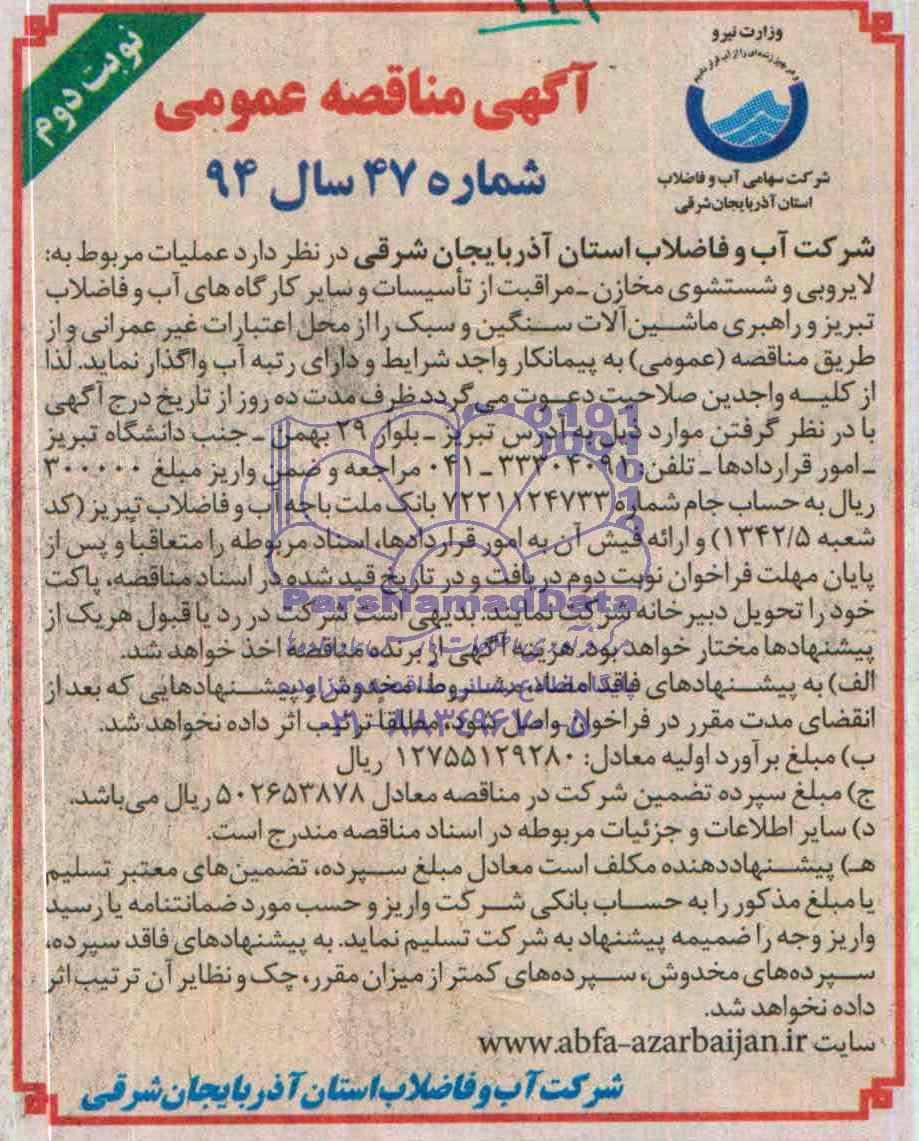 وزارت نیرو
نوبت دوم
آگهی مناقصه عمومی
شماره ۴۷ سال ۹۴
شرکت سهامی آب و فاضلاب
استان آذربایجان شرقی
شرکت آب و فاضلاب استان آذربایجان شرقی در نظر دارد عملیات مربوط به:
لایروبی و شستشوی مخازن ـ مراقبت از تأسیسات و سایر کارگاه های آب و فاضلاب
تبریز و راهبری ماشین‌آلات سنگین و سبک را از محل اعتبارات غیر عمرانی و از
طریق مناقصه (عمومی) به پیمانکار واجد شرایط و دارای رتبه آب واگذار نماید. لذا
از کلیه واجدین صلاحیت دعوت می گردد ظرف مدت ده روز از تاریخ درج آگهی
با در نظر گرفتن موارد ذیل به آدرس تبریز ـ بلوار ۲۹ بهمن ـ جنب دانشگاه تبریز
ـ امور قراردادها ـ تلفن: ۳۳۳۰۴۰۹۱ ـ ۰۴۱ مراجعه و ضمن واریز مبلغ ۳۰۰۰۰۰
ریال به حساب جام شماره ۷۲۲۱۱۲۴۷۳۳ بانک ملت باجه آب و فاضلاب تبریز (کد
شعبه ۱۳۴۲/۵) و ارائه فیش آن به امور قراردادها، اسناد مربوطه را متعاقباً و پس از
پایان مهلت فراخوان نوبت دوم دریافت و در تاریخ قید شده در اسناد مناقصه، پاکت
خود را تحویل دبیرخانه شرکت نمایند. بدیهی است شرکت در رد یا قبول هر یک از
پیشنهادها مختار خواهد بود. هزینه آگهی از برنده مناقصه اخذ خواهد شد.
الف) به پیشنهادهای فاقد امضاء، مشروط، مخدوش و پیشنهادهایی که بعد از
انقضای مدت مقرر در فراخوان واصل شود، مطلقاً ترتیب اثر داده نخواهد شد.
ب) مبلغ برآورد اولیه معادل: ۱۲۷۵۵۱۲۹۲۸۰ ریال
ج) مبلغ سپرده تضمین شرکت در مناقصه معادل ۵۰۲۶۵۳۸۷۸ ریال می‌باشد.
د) سایر اطلاعات و جزئیات مربوطه در اسناد مناقصه مندرج است.
هـ) پیشنهاددهنده مکلف است معادل مبلغ سپرده، تضمین‌های معتبر تسلیم
یا مبلغ مذکور را به حساب بانکی شرکت واریز و حسب مورد ضمانتنامه یا رسید
واریز وجه را ضمیمه پیشنهاد به شرکت تسلیم نماید. به پیشنهادهای فاقد سپرده،
سپرده‌های مخدوش، سپرده‌های کمتر از میزان مقرر، چک و نظایر آن ترتیب اثر
داده نخواهد شد.
سایت www.abfa-azarbaijan.ir
شرکت آب و فاضلاب استان آذربایجان شرقی
ParsNamadData
۰۲۱-۸۸۳۴۹۶۷۰-۵